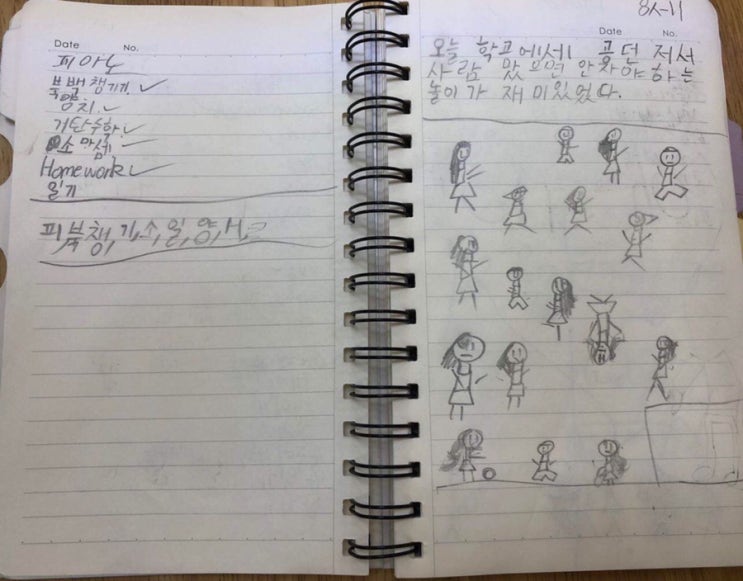 Date No.
피아노
북백챙기기 ✓
양치 ✓
기탄수학 ✓
Homework ✓
일기
피, 북, 챙, 기, 소, 일, 양, H,
8시-11
Date No.
오늘 학교에서 공던져서
사람 맞으면 안자야하는
놀이가 재미있었다.